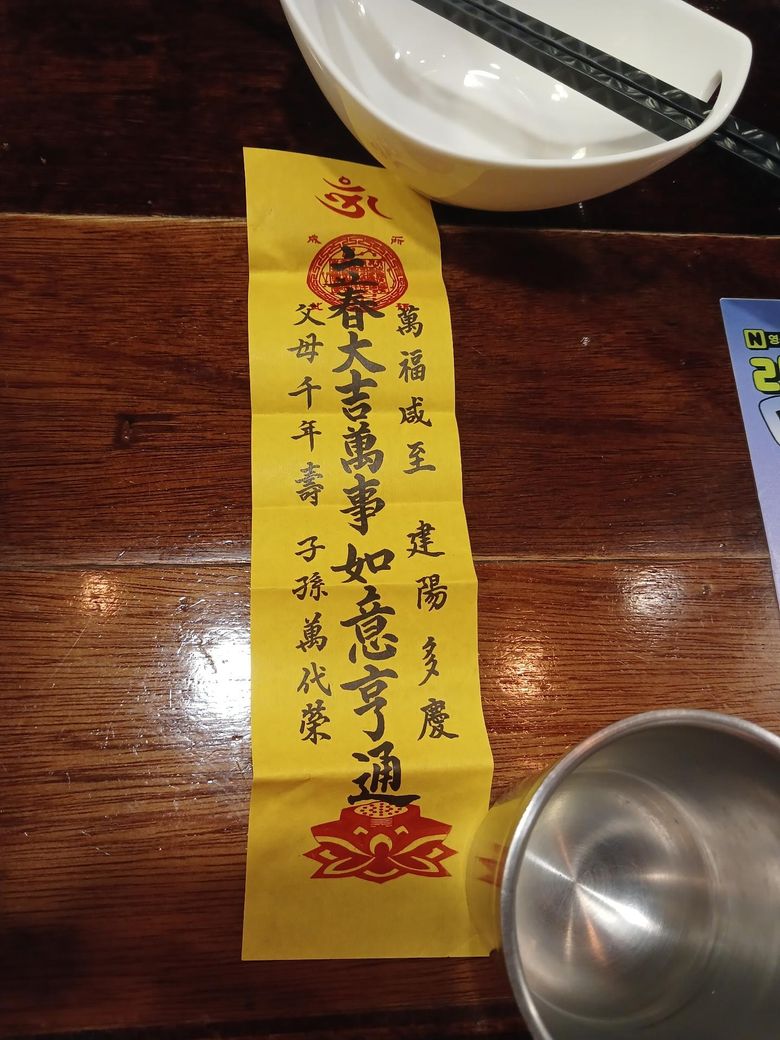 成 所
萬福咸至 建陽多慶
立春大吉萬事如意亨通
父母千年壽 子孫萬代榮
N 영